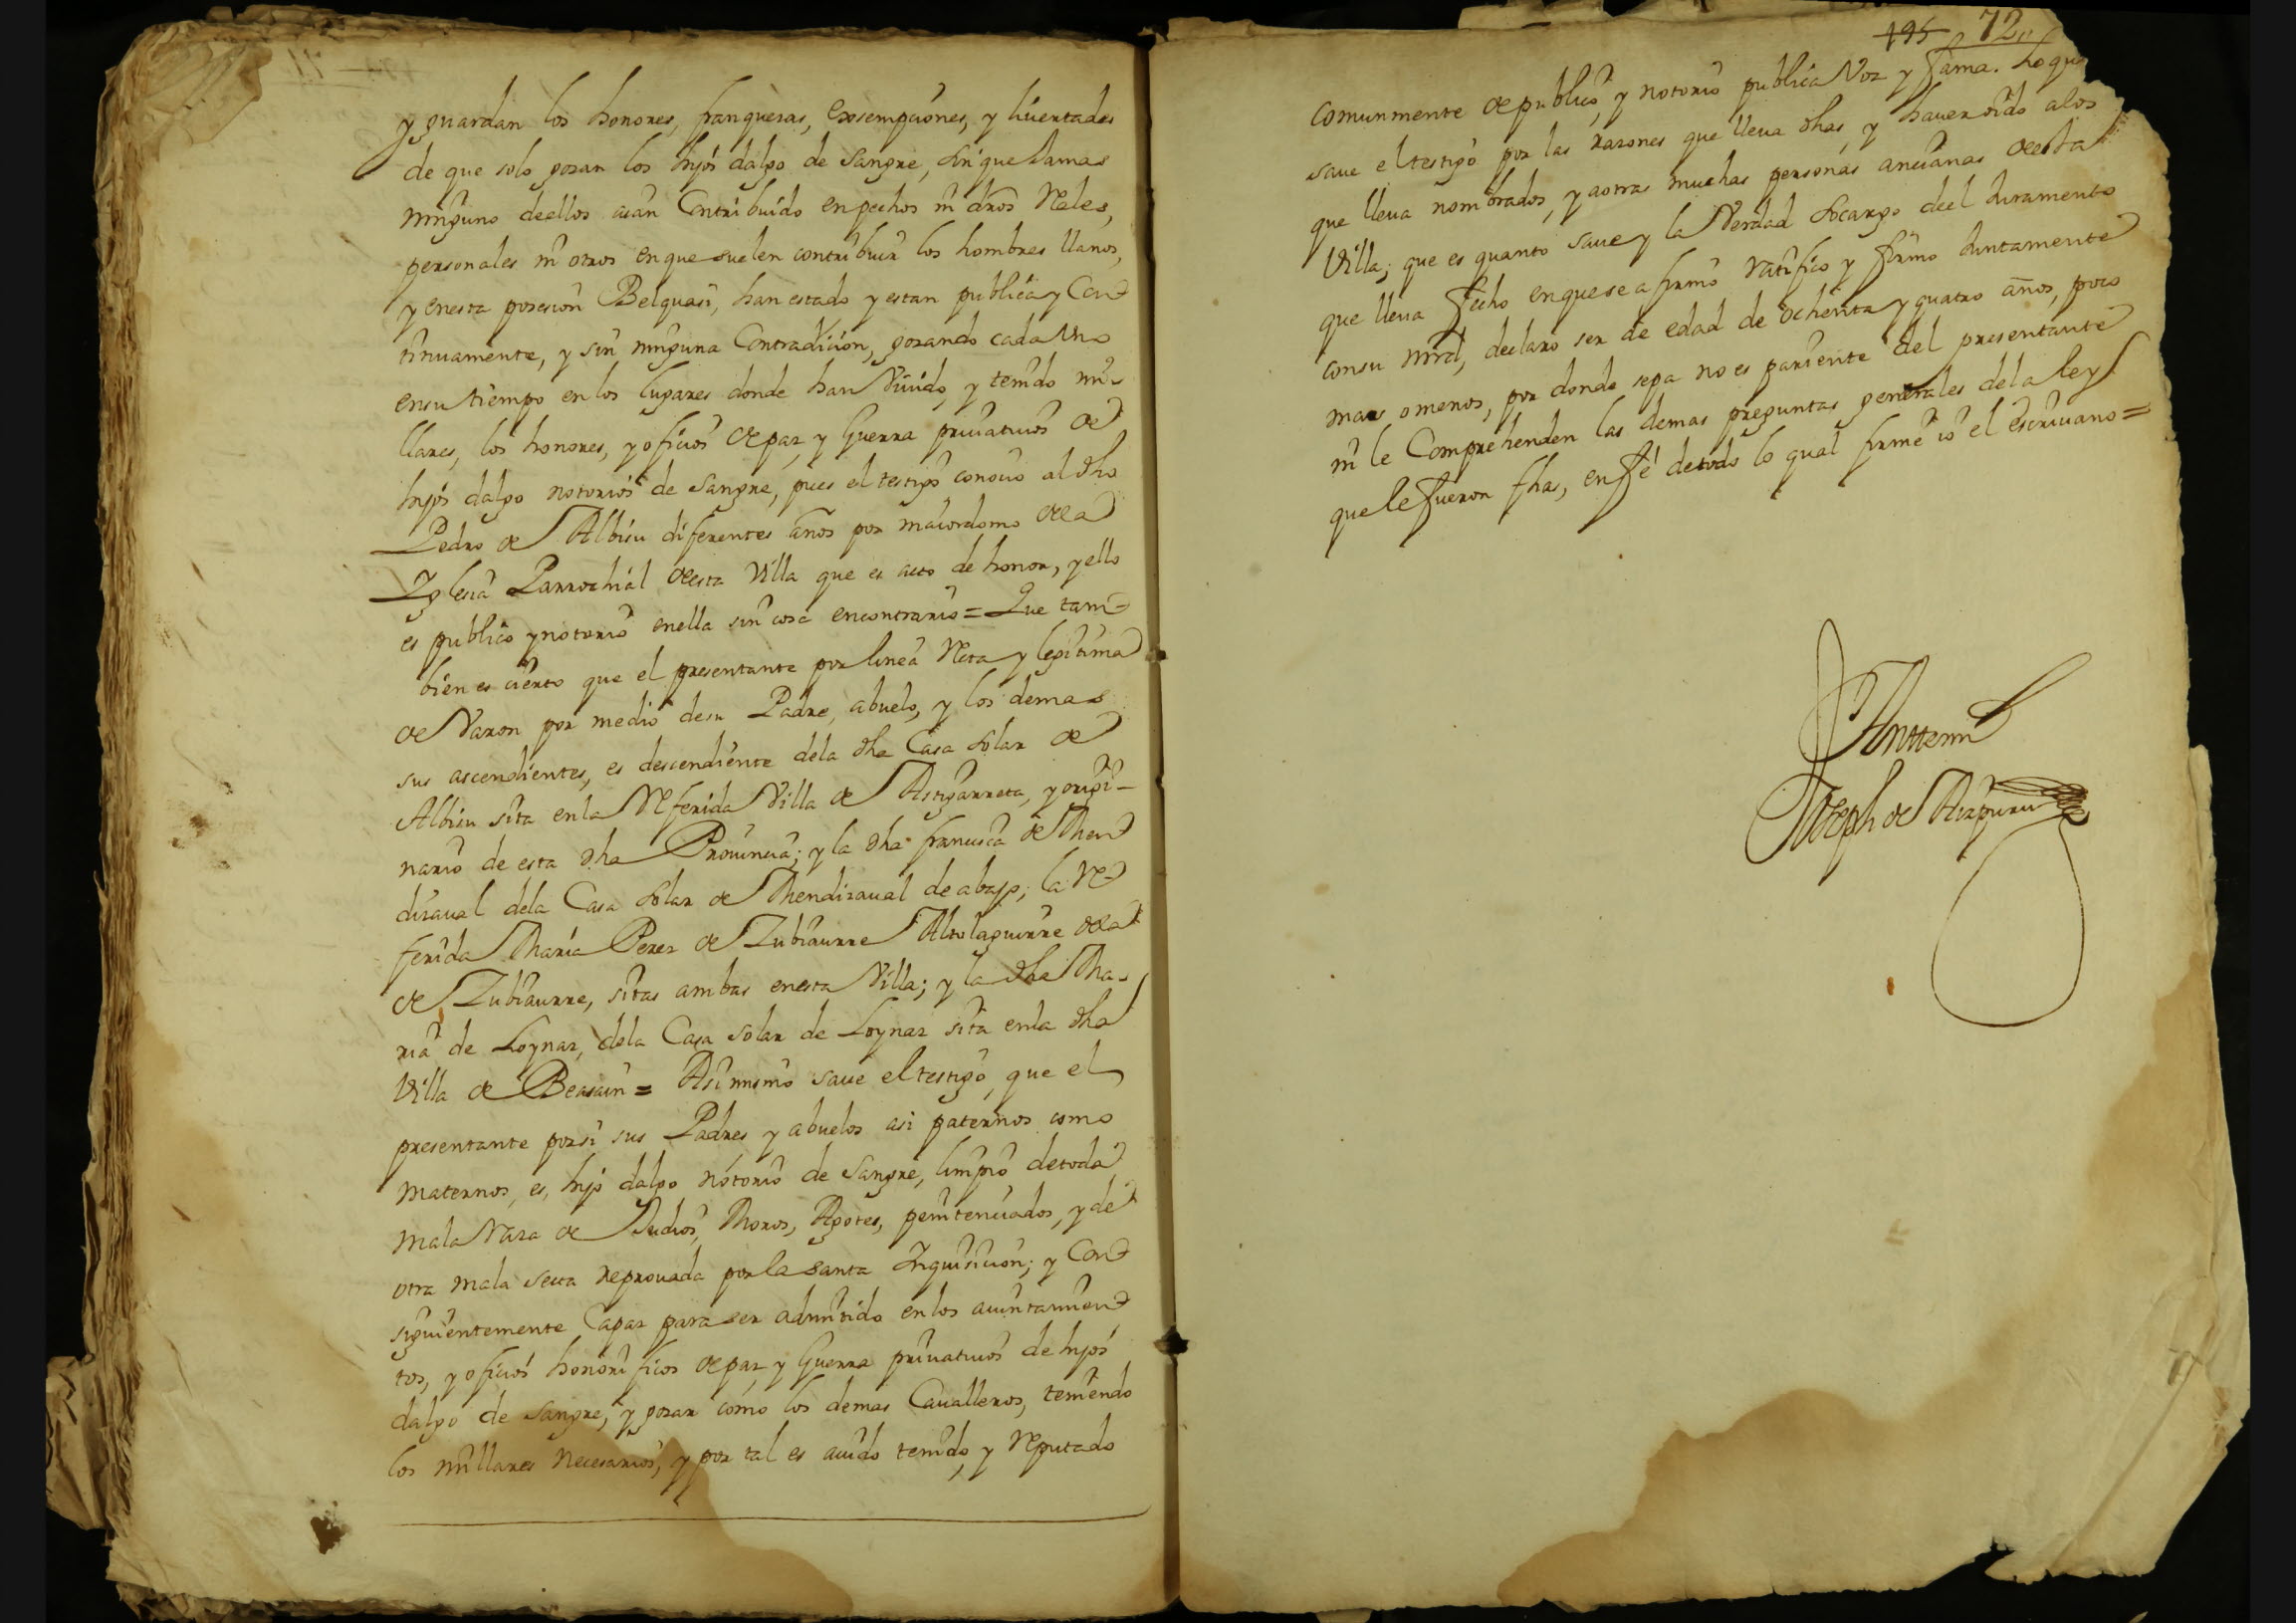 y guardan los honores, franquesas, exsempciones, y livertades
de que solo gozan los hijos dalgo de sangre, sin que Jamas
ninguno deellos aian Contribuido enpechos ni dros Reales,
personales ni otros enque suelen contribuir los hombres llanos,
y enesta posesion Belquasi, han estado y estan publica y Con
tinuamente, y sin ninguna Contradicion, gozando cada Uno
ensu tiempo en los lugares donde han Vivido, y tenido mi-
llares, los honores, y oficios de paz, y Guerra privativos de
hijos dalgo notorios de sangre, pues el testigo conocio al dho
Pedro de Albisu diferentes años por maiordomo dela
Yglesia Parrochial desta Villa que es acto de honor, y ello
es publico y notorio enella sin cosa encontrario = Que tam
bien es cierto que el presentante por linea Recta y legitima
de Varon por medio desu Padre, abuelo, y los demas
sus ascendientes, es descendiente dela dha Casa solar de
Albisu sita enla Referida Villa de Astigarreta, y origi-
nario de esta dha Provincia; y la dha francisca de Men
dizaval dela Casa solar de Mendizaval de abajo; la Re
ferida Maria Perez de Zubiaurre Altolaguirre dela
de Zubiaurre, sitas ambas enesta Villa; y la dha Ma-
ria de Loynaz, dela Casa solar de Loynaz sita enla dha
Villa de Beasain = Asi mismo save el testigo, que el
presentante porsi sus Padres y abuelos asi paternos como
maternos, es, hijo dalgo notorio de sangre, limpio detoda
mala Raza de Judios, Moros, Agotes, penitenciados, y de
otra mala secta reprovada por la santa Inquisicion; y Con
siguientemente Capaz para ser admitido en los aiuntamien
tos, y oficios honorificos de paz, y Guerra privativos de hijos
dalgo de sangre, y gozar como los demas Cavalleros, teniendo
los millares necesarios, y por tal es avido tenido, y Reputado
195 72
comunmente de publico, y notorio publica Voz y fama. Lo que
save el testigo por las razones que lleva dhas, y haver oido a los
que lleva nombrados, y aotras muchas personas ancianas deesta
Villa; que es quanto save y la Verdad socargo deel Juramento
que lleva fecho enquese afirmo ratifico y firmo Juntamente
consu mrd, declaro ser de edad de ochenta y quatro años, poco
mas o menos, por donde sepa no es pariente del presentante
ni le Comprehenden las demas preguntas generales dela ley
que le fueron fhas, enfé detodo lo qual firmé io el escrivano =
Anttemi
Joseph de Aizpuru